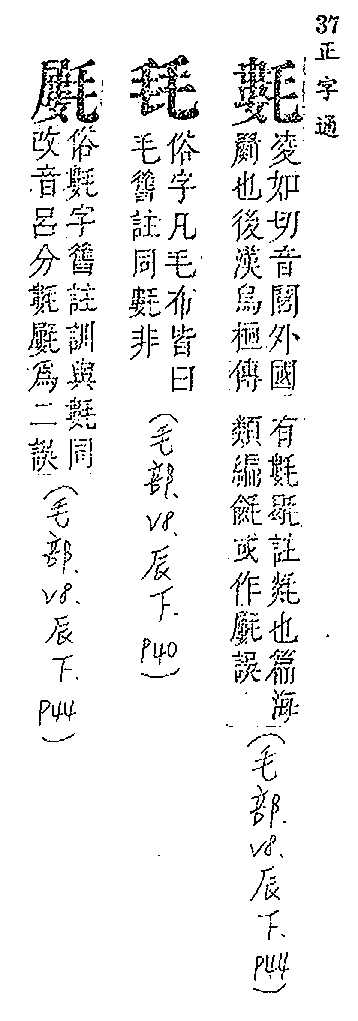 37正字通
氀
凌如切音閭外國
罽也後漢烏桓傳
有氀毼註也篇海
類編或作誤
(毛部.V8.辰下.P44)
俗字凡毛布皆曰
毛舊註同氀非
(毛部.V8.辰下.P40)
俗氀字舊註訓與氀同
改音呂分氀爲二誤
(毛部.V8.辰下.P44)